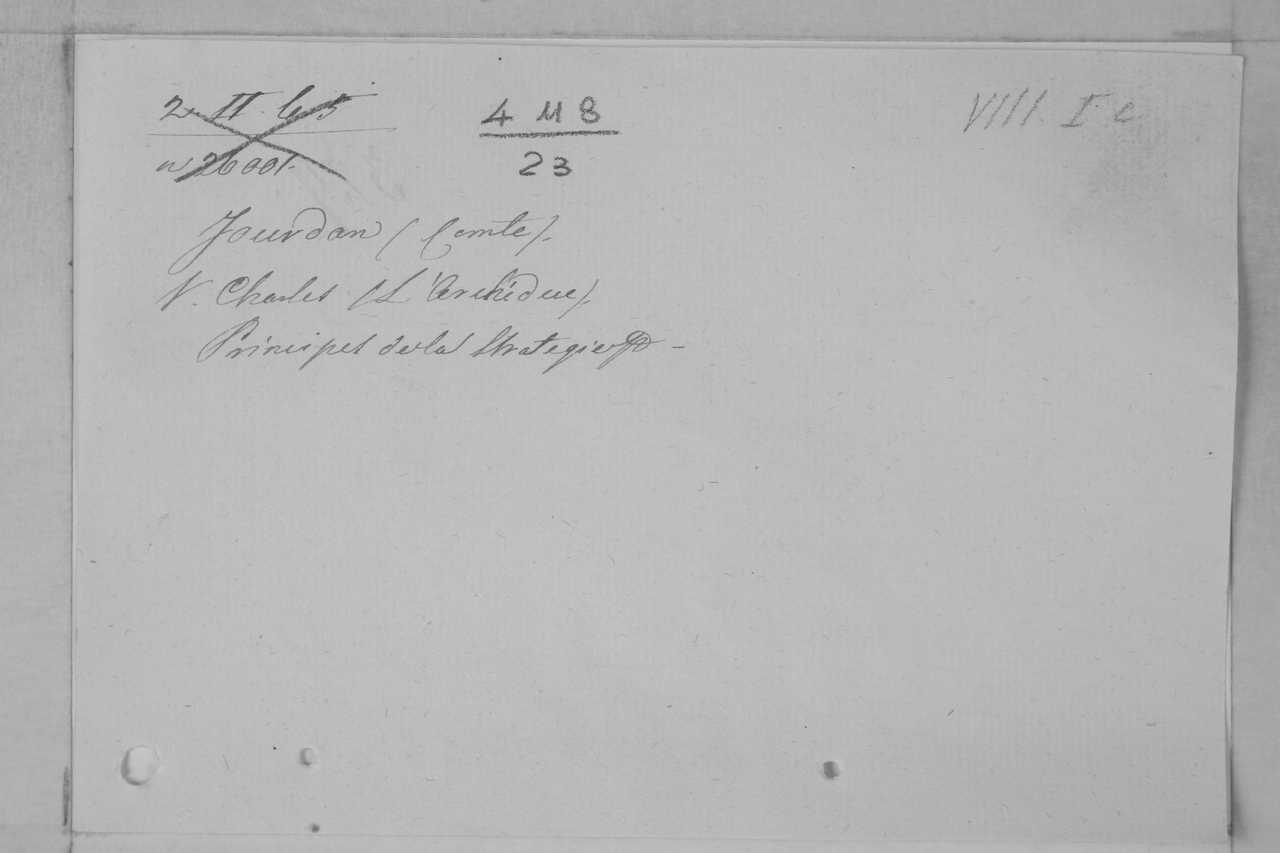 2 II. b 5
4 M 8
VIII. I c
n 26001.
23
Jourdan (Comte).
V. Charles (L'Archiduc).
Principes de la Strategie &